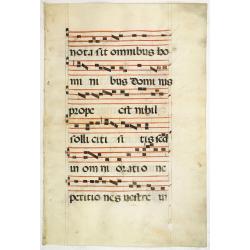 nota sit omnibus ho
mi ni bus Dominus
prope est nihil
solliciti si tis sed
in om ni oratio ne
petitio nes vestre in